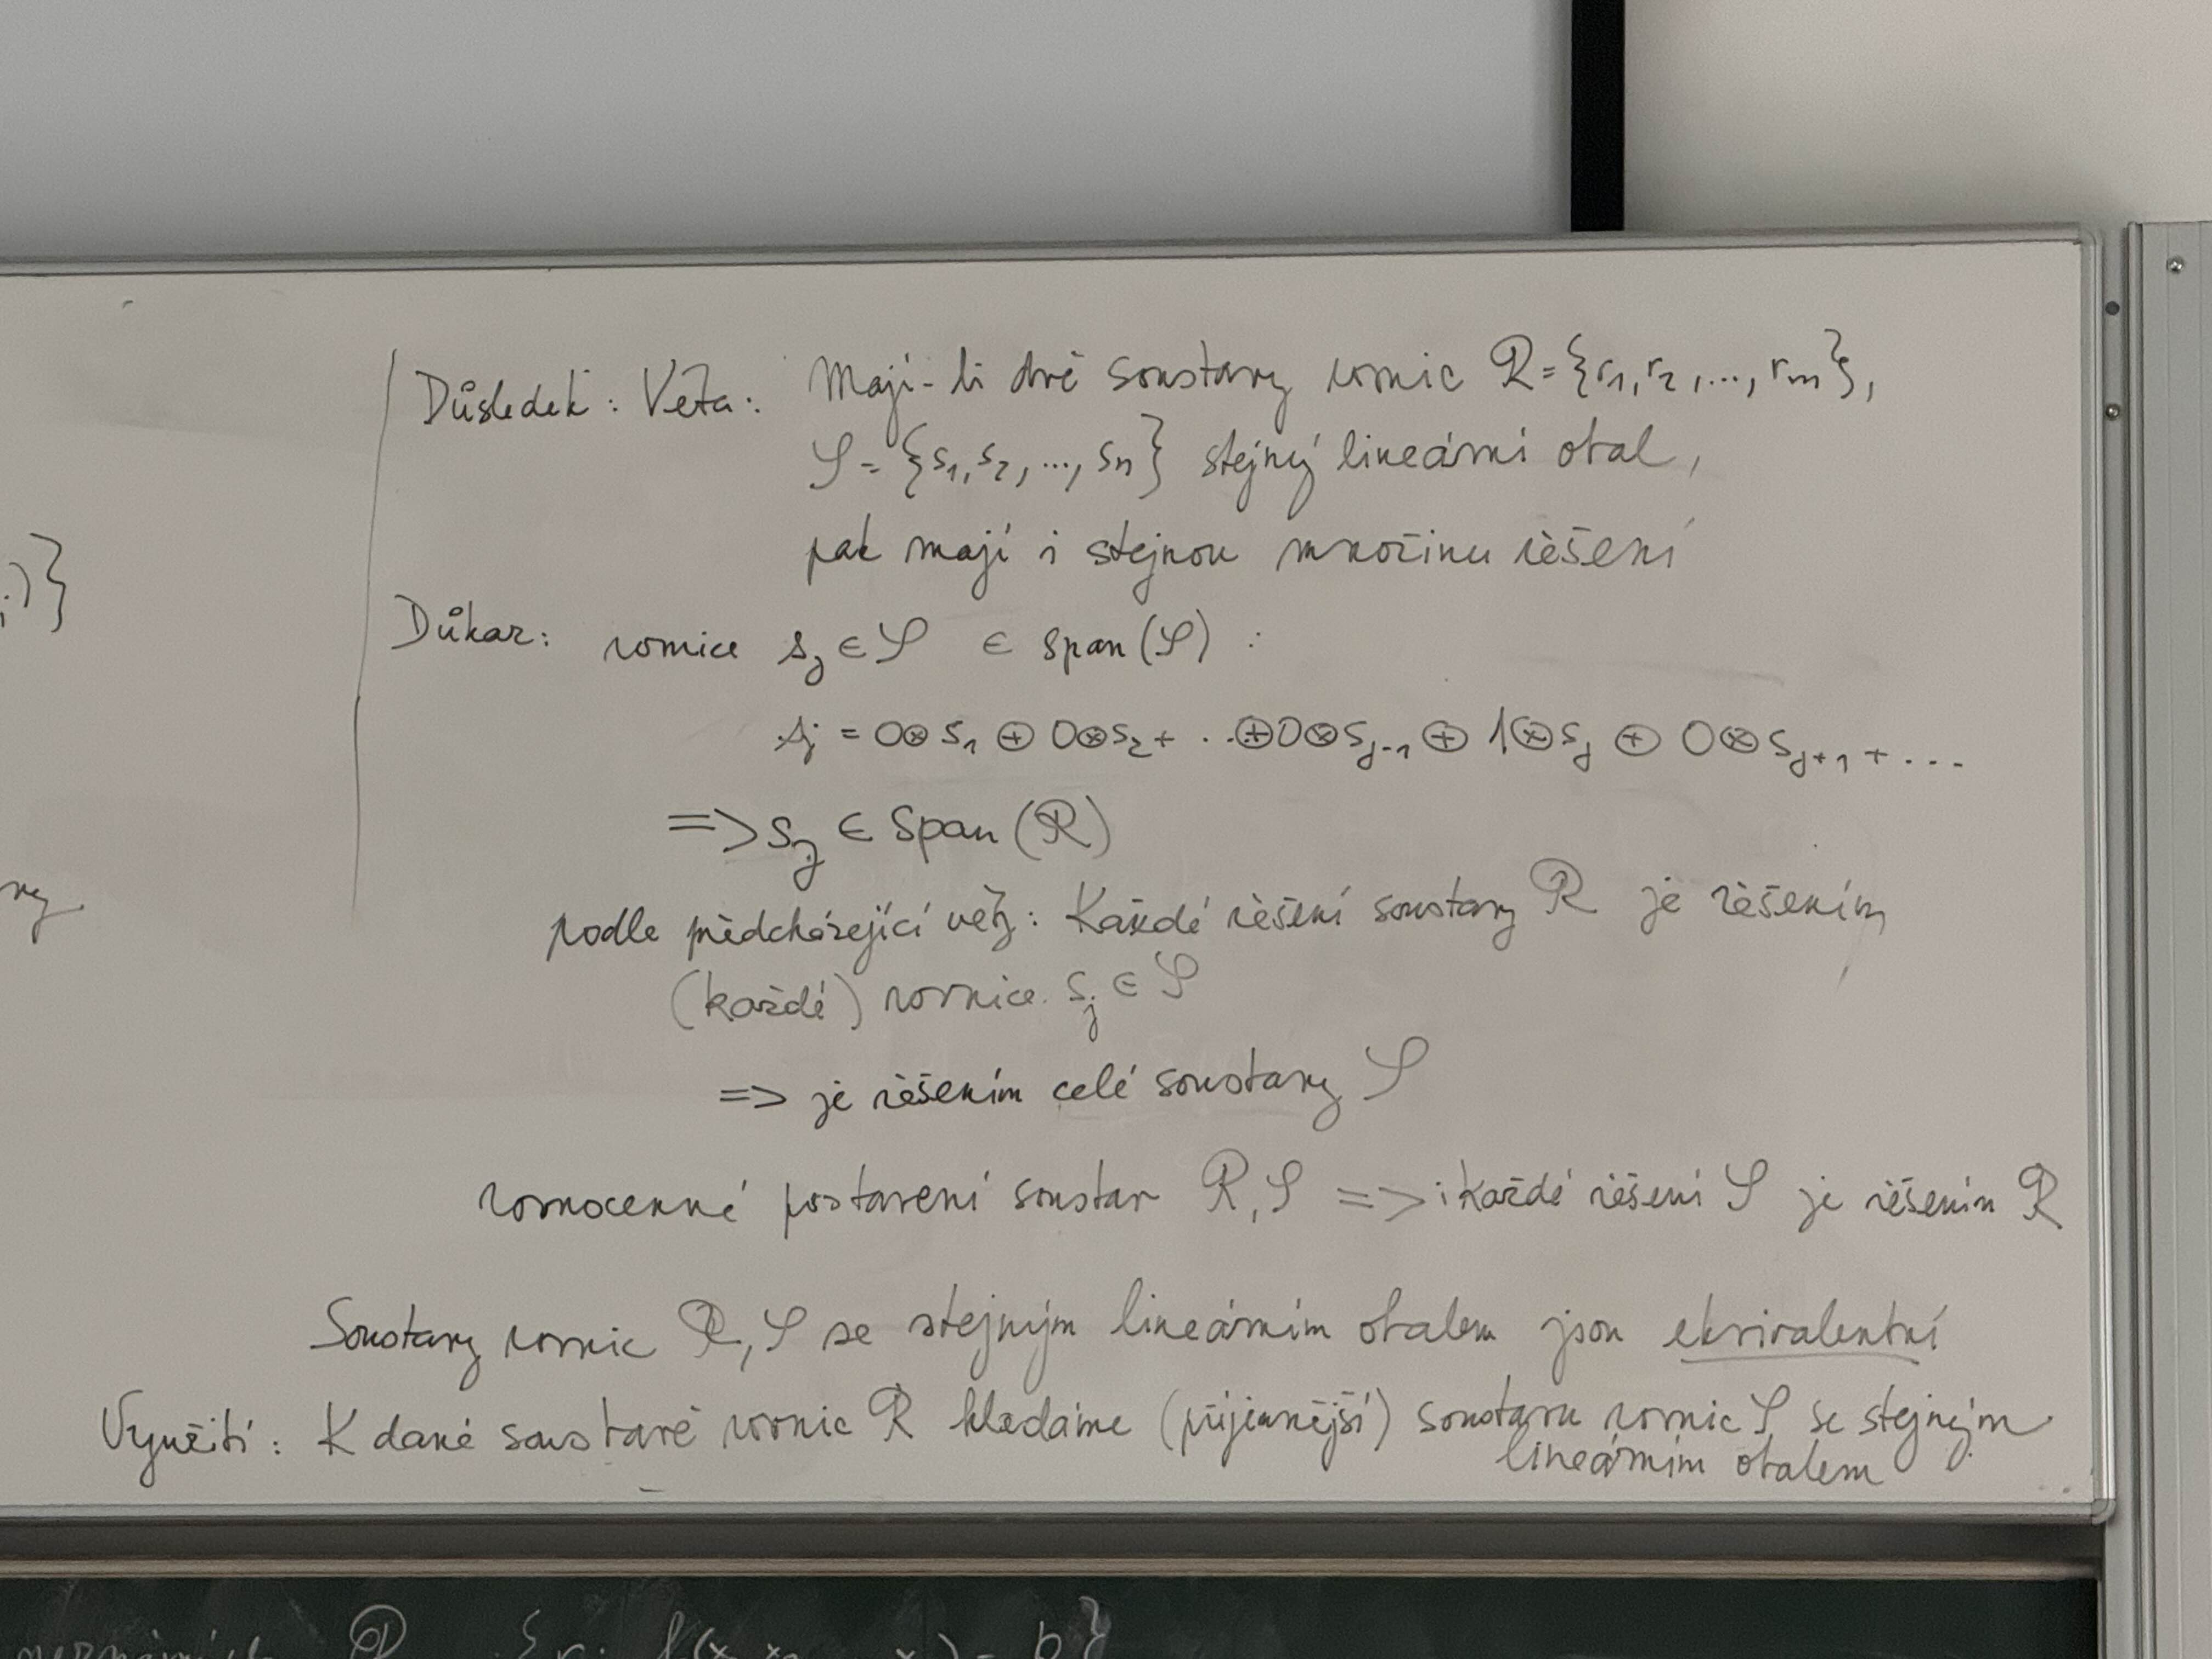 Důsledek: Věta: Mají-li dvě soustavy rovnic R={r₁, r₂, ..., rₘ},
S={s₁, s₂, ..., sₙ} stejný lineární obal,
pak mají i stejnou množinu řešení
Důkaz: rovnice sⱼ∈S ∈ span(S) :
sⱼ = 0⊗s₁ ⊕ 0⊗s₂ + ...⊕0⊗sⱼ₋₁ ⊕ 1⊗sⱼ ⊕ 0⊗sⱼ₊₁ + ...
=> sⱼ ∈ span(R)
podle předcházející věty: Každé řešení soustavy R je řešením
(každé) rovnice sⱼ ∈ S
=> je řešením celé soustavy S
rovnocenné postavení soustav R, S => i každé řešení S je řešením R
Soustavy rovnic R, S se stejným lineárním obalem jsou ekvivalentní
Využití: K dané soustavě rovnic R hledáme (příjemnější) soustavu rovnic S se stejným
lineárním obalem